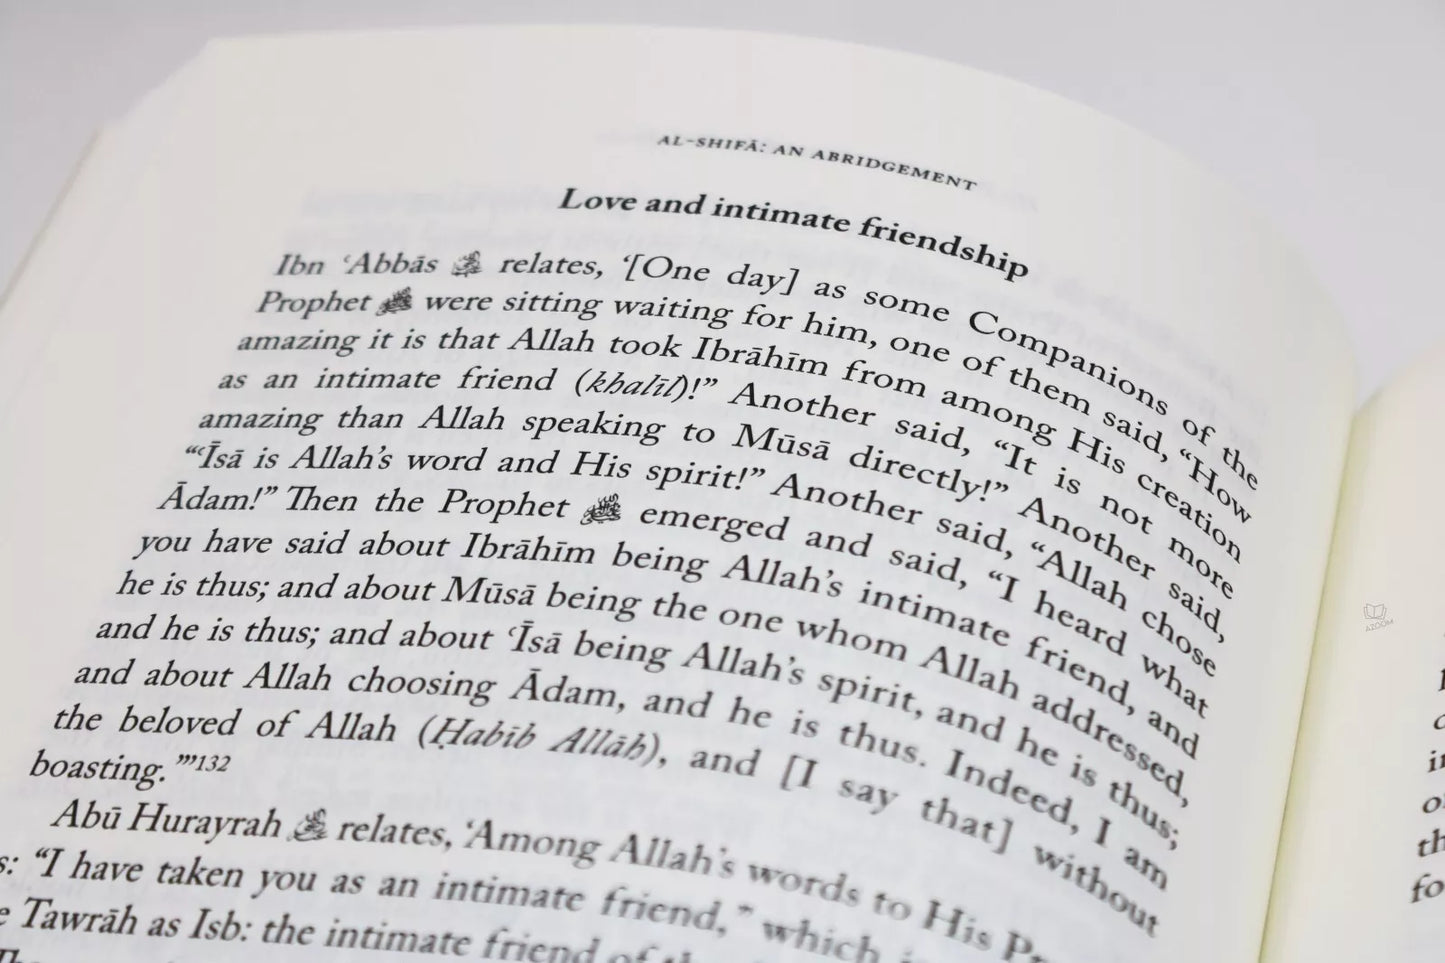 AL-SHIFĀ: AN ABRIDGEMENT
Love and intimate friendship
Ibn ʿAbbās relates, ‘[One day] as some Companions of the
Prophet ﷺ were sitting waiting for him, one of them said, “How
amazing it is that Allah took Ibrāhīm from among His creation
as an intimate friend (khalīl)!” Another said, “It is not more
amazing than Allah speaking to Mūsā directly!” Another said,
“ʿĪsā is Allah’s word and His spirit!” Another said, “Allah chose
Ādam!” Then the Prophet ﷺ emerged and said, “I heard what
you have said about Ibrāhīm being Allah’s intimate friend, and
he is thus; and about Mūsā being the one whom Allah addressed,
and he is thus; and about ʿĪsā being Allah’s spirit, and he is thus;
and about Allah choosing Ādam, and he is thus. Indeed, I am
the beloved of Allah (Ḥabīb Allāh), and [I say that] without
boasting.”’132
Abū Hurayrah relates, ‘Among Allah’s words to His
“I have taken you as an intimate friend,” which
Tawrāh as Isb: the intimate friend of
AZOOM